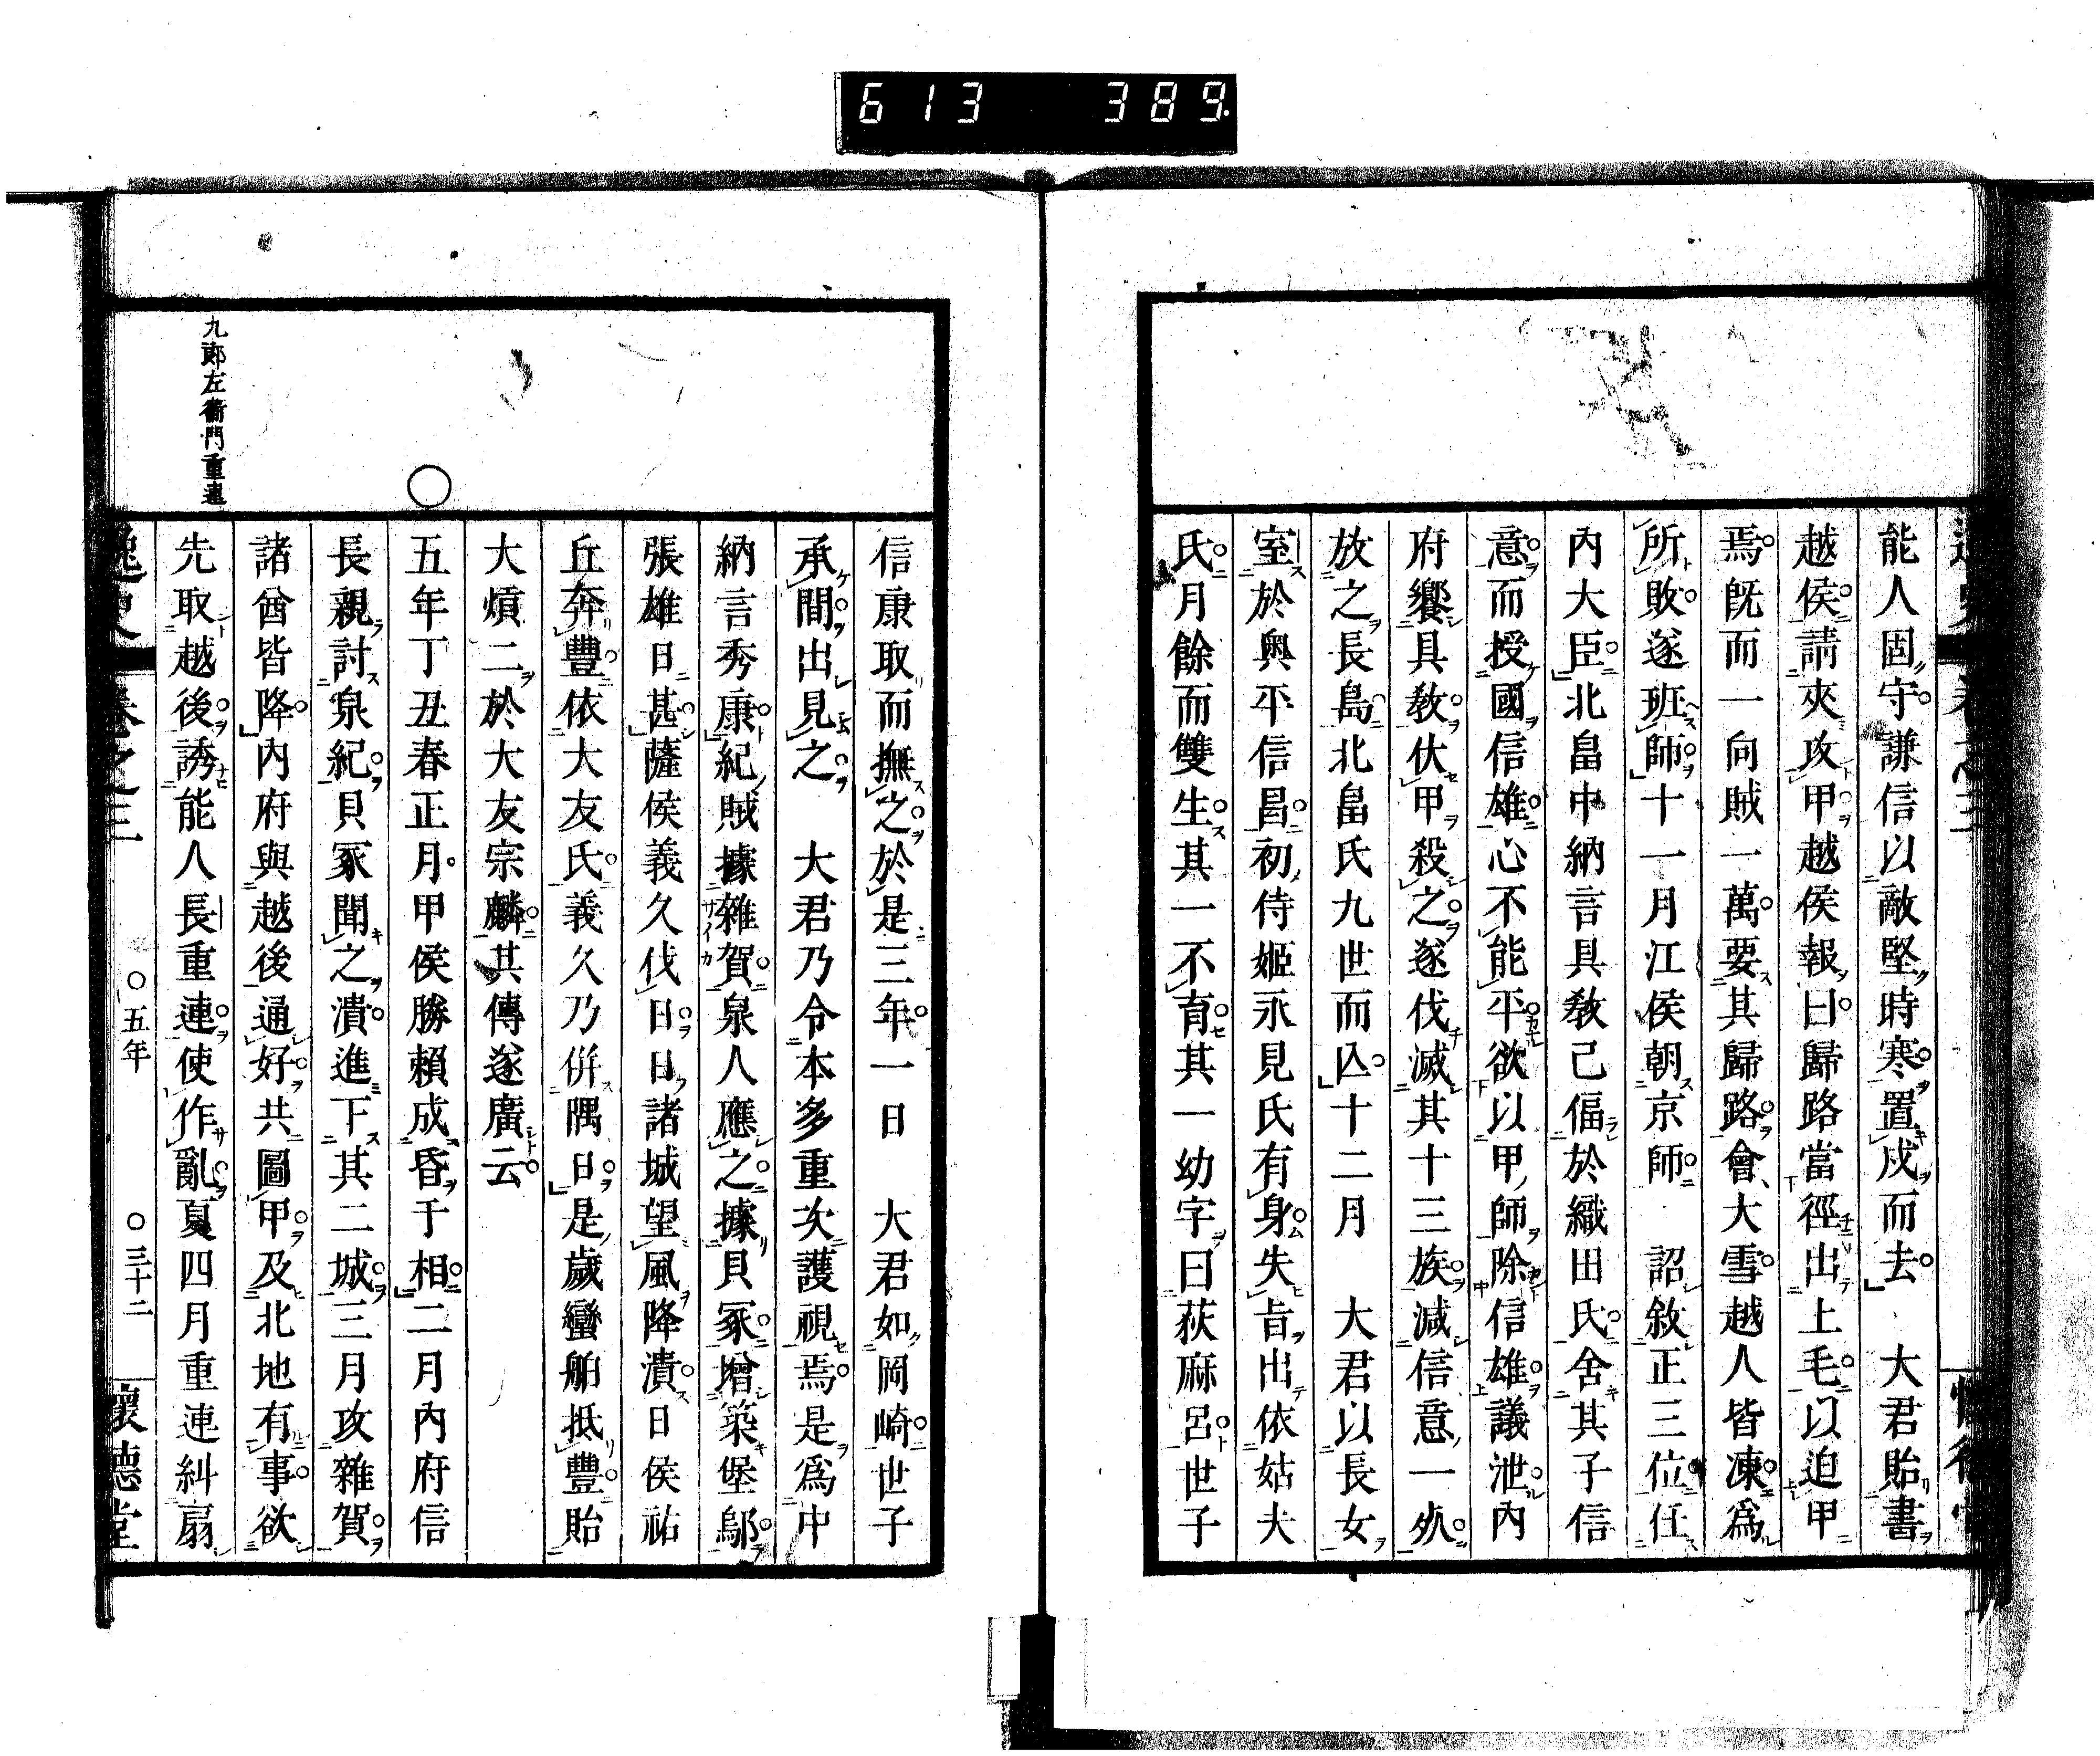 613 389.
能人固守謙信以敵堅時寒置戍而去　大君貽書
越侯請夾攻甲越侯報曰歸路當徑出上毛以迫甲
焉既而一向賊一萬要其歸路會大雪越人皆凍爲
所敗遂班師十一月江侯朝京師　詔敘正三位任
內大臣北畠中納言具教己偪於織田氏舍其子信
意而授國信雄心不能平欲以甲師除信雄議泄內
府饗具教伏甲殺之遂伐滅其十三族減信意一死
放之長島北畠氏九世而亾十二月　大君以長女
室於奧平信昌初侍姬永見氏有身失旨出依姑夫
氏月餘而雙生其一不育其一幼字曰荻麻呂世子
信康取而撫之於是三年一日　大君如岡崎世子
承間出見之　大君乃令本多重次護視焉是爲中
納言秀康紀賊據雜賀泉人應之據貝冢增築堡鄔
張雄日甚薩侯義久伐日日諸城望風降潰日侯祐
丘奔豐依大友氏義久乃併隅日是歲蠻舶抵豐貽
大熕二於大友宗麟其傳遂廣云
五年丁丑春正月甲侯勝賴成昏于相二月內府信
長親討泉紀貝冢聞之潰進下其二城三月攻雜賀
諸酋皆降內府與越後通好共圖甲及北地有事欲
先取越後誘能人長重連使作亂夏四月重連糾扇
九郎左衞門重連
逸史 卷之三 ○五年 ○三十二 懷德堂